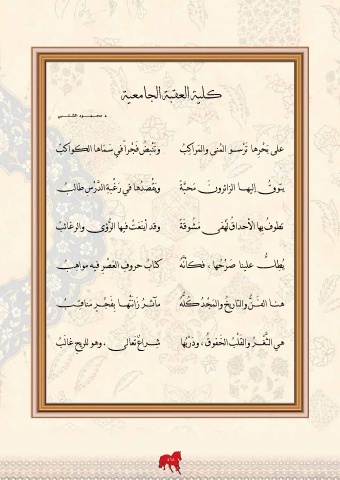 كلية العقبة الجامعية
د. محمود الشلبي
على بَحْرِها تَرْسو المُنى والمَراكِبُ وتَنْبضُ فَجْراً في سَمَاها الكواكبُ
يتوقُ إليها الزائرونَ مَحبَّةً ويَقْصِدُها في رَغْبةِ الدَّرْسِ طالبُ
تطوفُ بها الأحداقُ لَهْفَى مَشُوقَةً وقد أينَعَتْ فيها الرُّؤى والرغائبُ
يُطِلُّ علينا صَرْحُها ، فكأنّهُ كتابُ حروفِ العَصْرِ فيه مواهبُ
هنا الفنُّ والتاريخُ والمَجْدُ كُلُّهُ مآثرُ زانَتْها بِفَخْرٍ مناقبُ
هي الثَّغْرُ والقَلْبُ الخَفوقُ ، ودَرْبُها شِراعٌ تعالى ، وهو للريحِ غالبُ